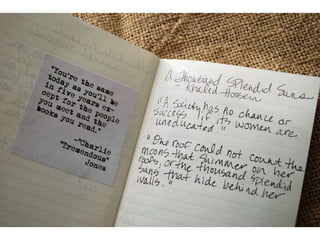 "You're the same
today as you'll be
in five years ex-
cept for the people
you meet and the
books you read."
-"Charlie
"Tremendous"
Jones
a Thousand Splendid Suns
- Khaled Hossein
"A society has no chance or
success if its women are
uneducated."
"One roof could not count the
moons that shimmer on her
roofs, or the thousand splendid
suns that hide behind her
walls."